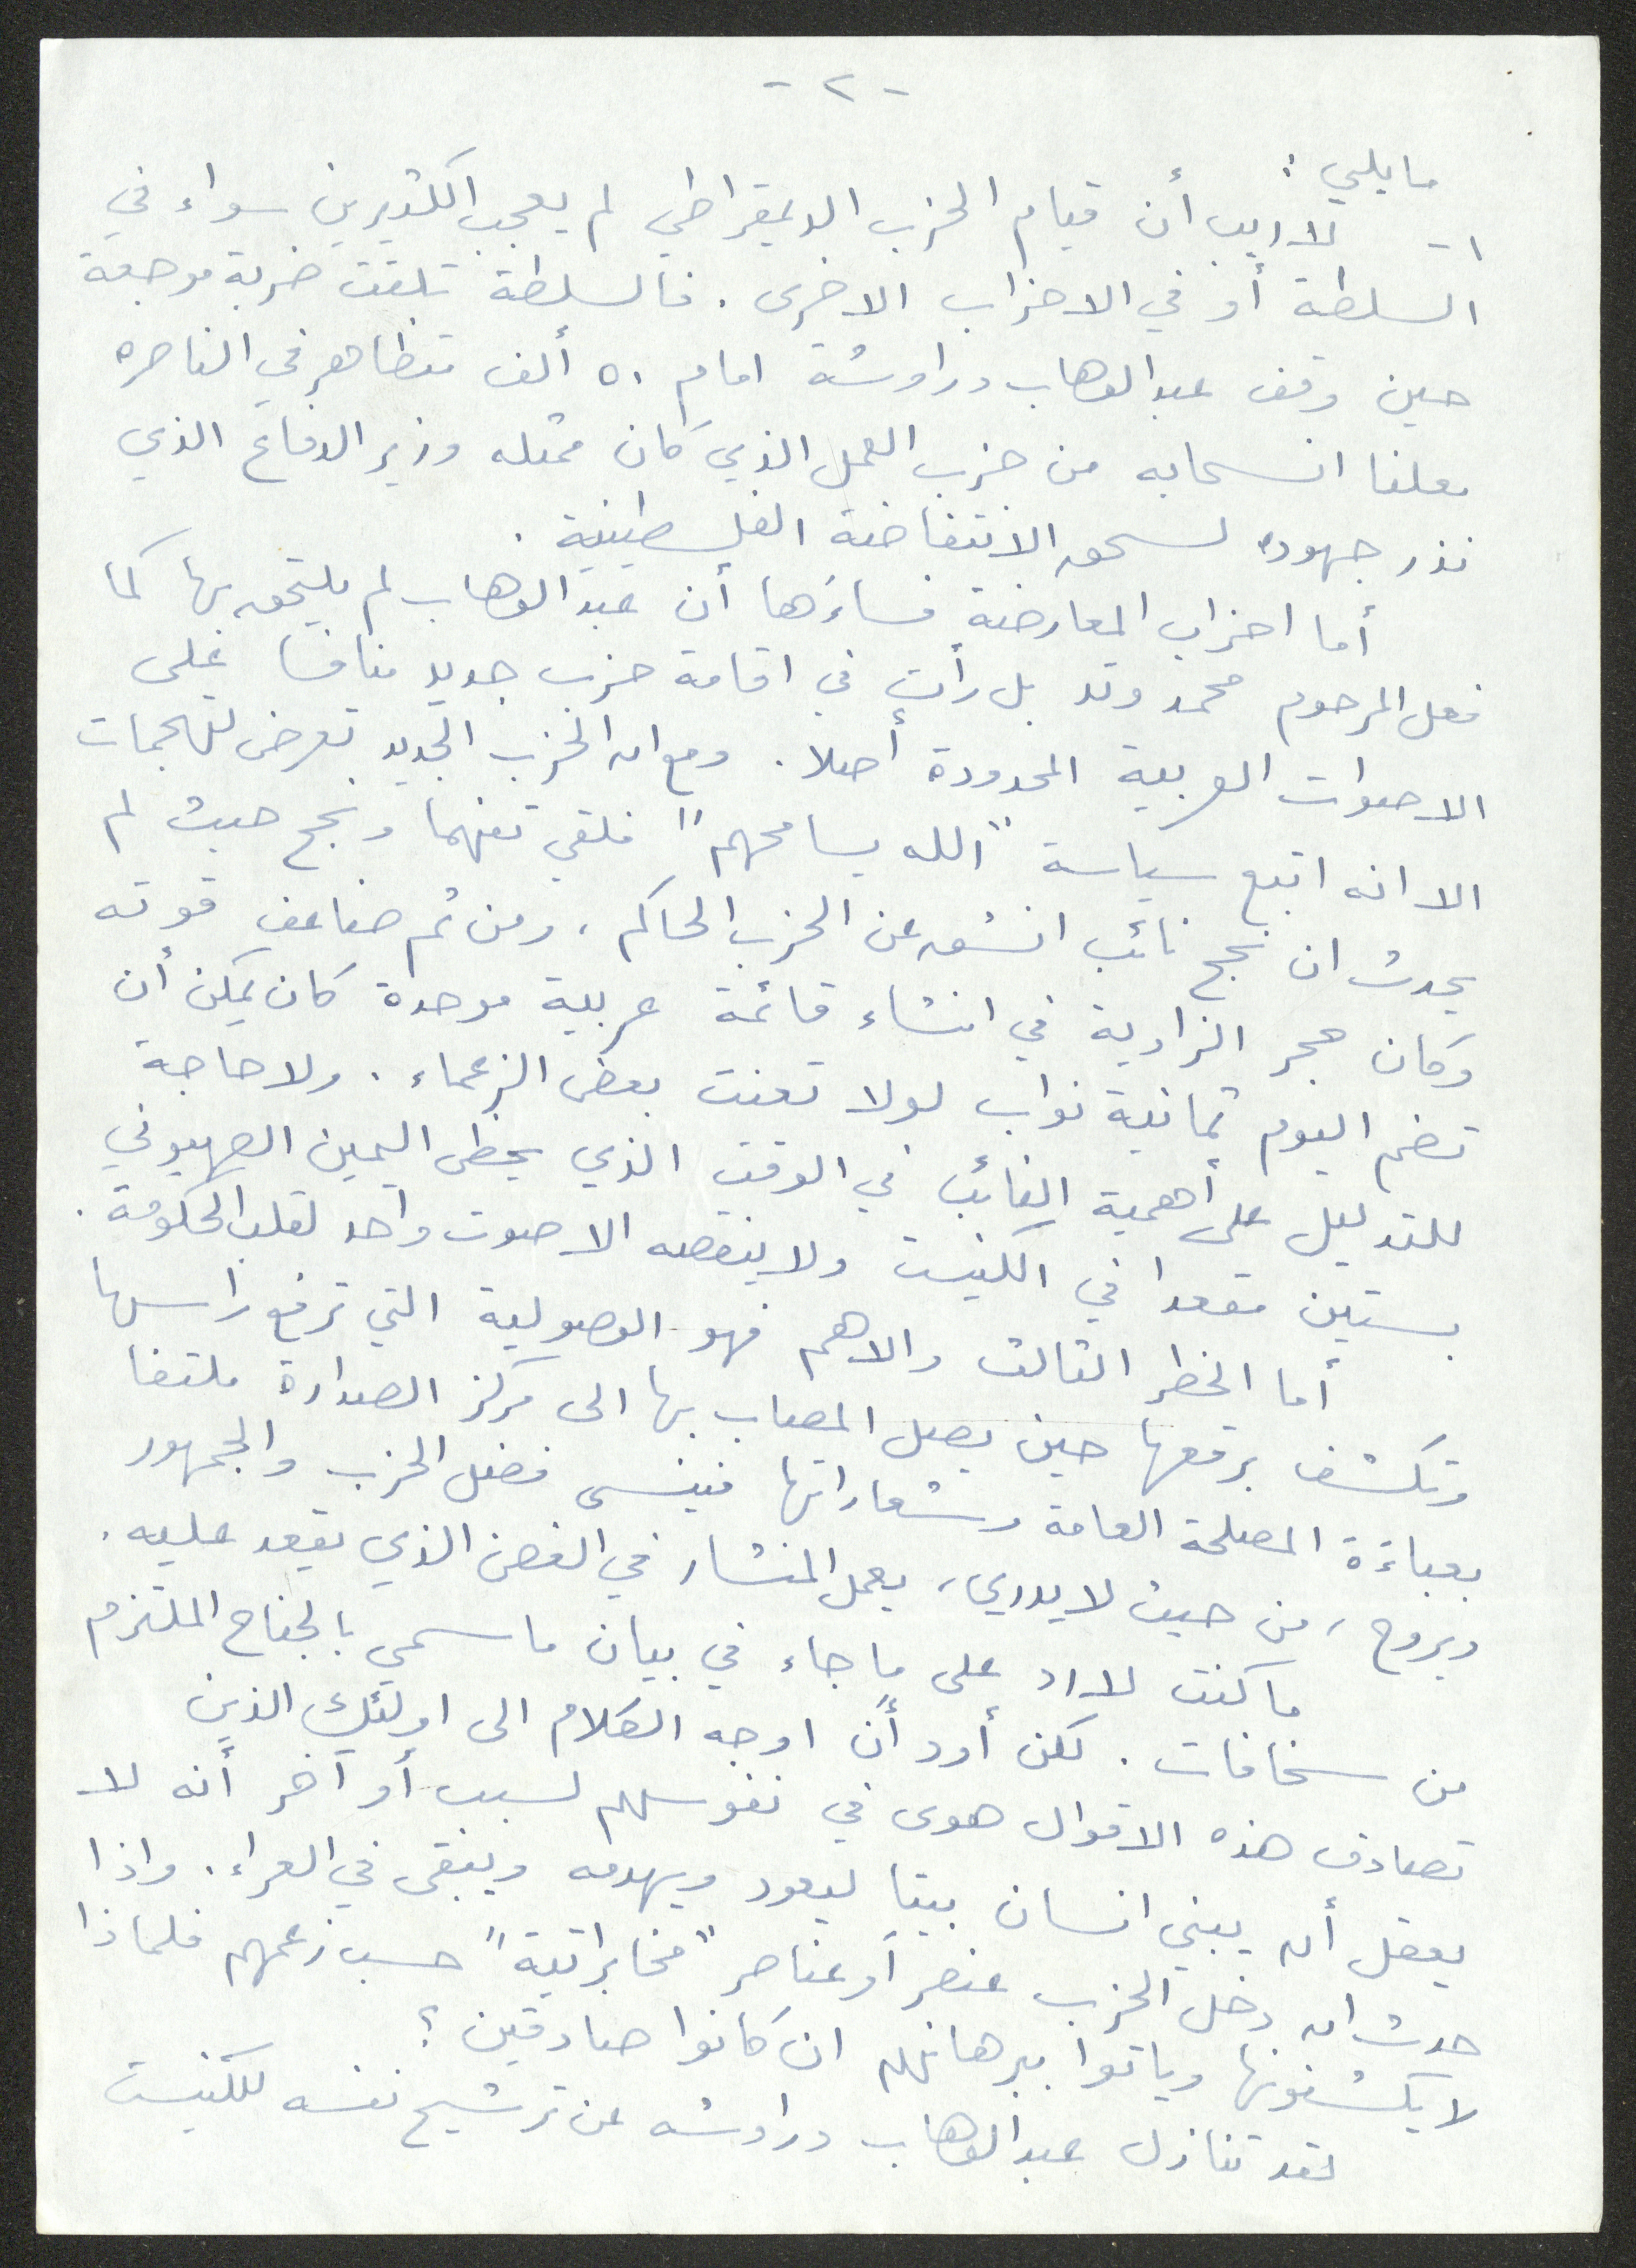 - ٢ -
ما يلي :
١- لا ريب أن قيام الحزب الديمقراطي لم يعجب الكثيرين سواء في
السلطة أو في الاحزاب الاخرى . فالسلطة تلقت ضربة موجعة
حين وقف عبد الوهاب دراوشة امام ٥٠ ألف متظاهر في الناصره
معلنا انسحابه من حزب العمل الذي كان ممثله وزير الدفاع الذي
نذر جهوده لسحق الانتفاضة الفلسطينية .
أما احزاب المعارضة فساءَها أن عبد الوهاب لم يلتحق بها كما
فعل المرحوم محمد وتد بل رأت في اقامة حزب جديد منافسا على
الاصوات العربية المحدودة أصلا . ومع ان الحزب الجديد تعرض لتهجمات
الا انه اتبع سياسة "الله يسامحهم" فلقي تفهما ونجح حيث لم
يحدث ان نجح نائب انشق عن الحزب الحاكم ، ومن ثم ضاعف قوته
وكان حجر الزاوية في انشاء قائمة عربية موحدة كان يمكن أن
تضم اليوم ثمانية نواب لولا تعنت بعض الزعماء . ولا حاجة
للتدليل على أهمية النائب في الوقت الذي يحظى اليمين الصهيوني
بستين مقعدا في الكنيست ولا ينقصه الا صوت واحد لقلب الحكومة .
أما الخطر الثالث والاهم فهو الوصولية التي ترفع راسها
وتكشف برقعها حين يصل المصاب بها الى مركز الصدارة ملتفا
بعباءَة المصلحة العامة وشعاراتها فينسى فضل الحزب والجمهور
ويروح ، من حيث لا يدري ، يعمل المنشار في الغصن الذي يقعد عليه .
ما كنت لارد على ما جاء في بيان ما سمي بالجناح الملتزم
من سخافات . لكن أود أن اوجه الكلام الى اولئك الذين
تصادف هذه الاقوال هوى في نفوسهم لسبب أو آخر أنه لا
يعقل أن يبني انسان بيتا ليعود ويهدمه ويبقى في العراء . واذا
حدث ان دخل الحزب عنصر أو عناصر "مخابراتية" حسب زعمهم فلماذا
لا يكشفونها وياتوا ببرهانهم ان كانوا صادقين ؟
لقد تنازل عبد الوهاب دراوشه عن ترشيح نفسه للكنيست